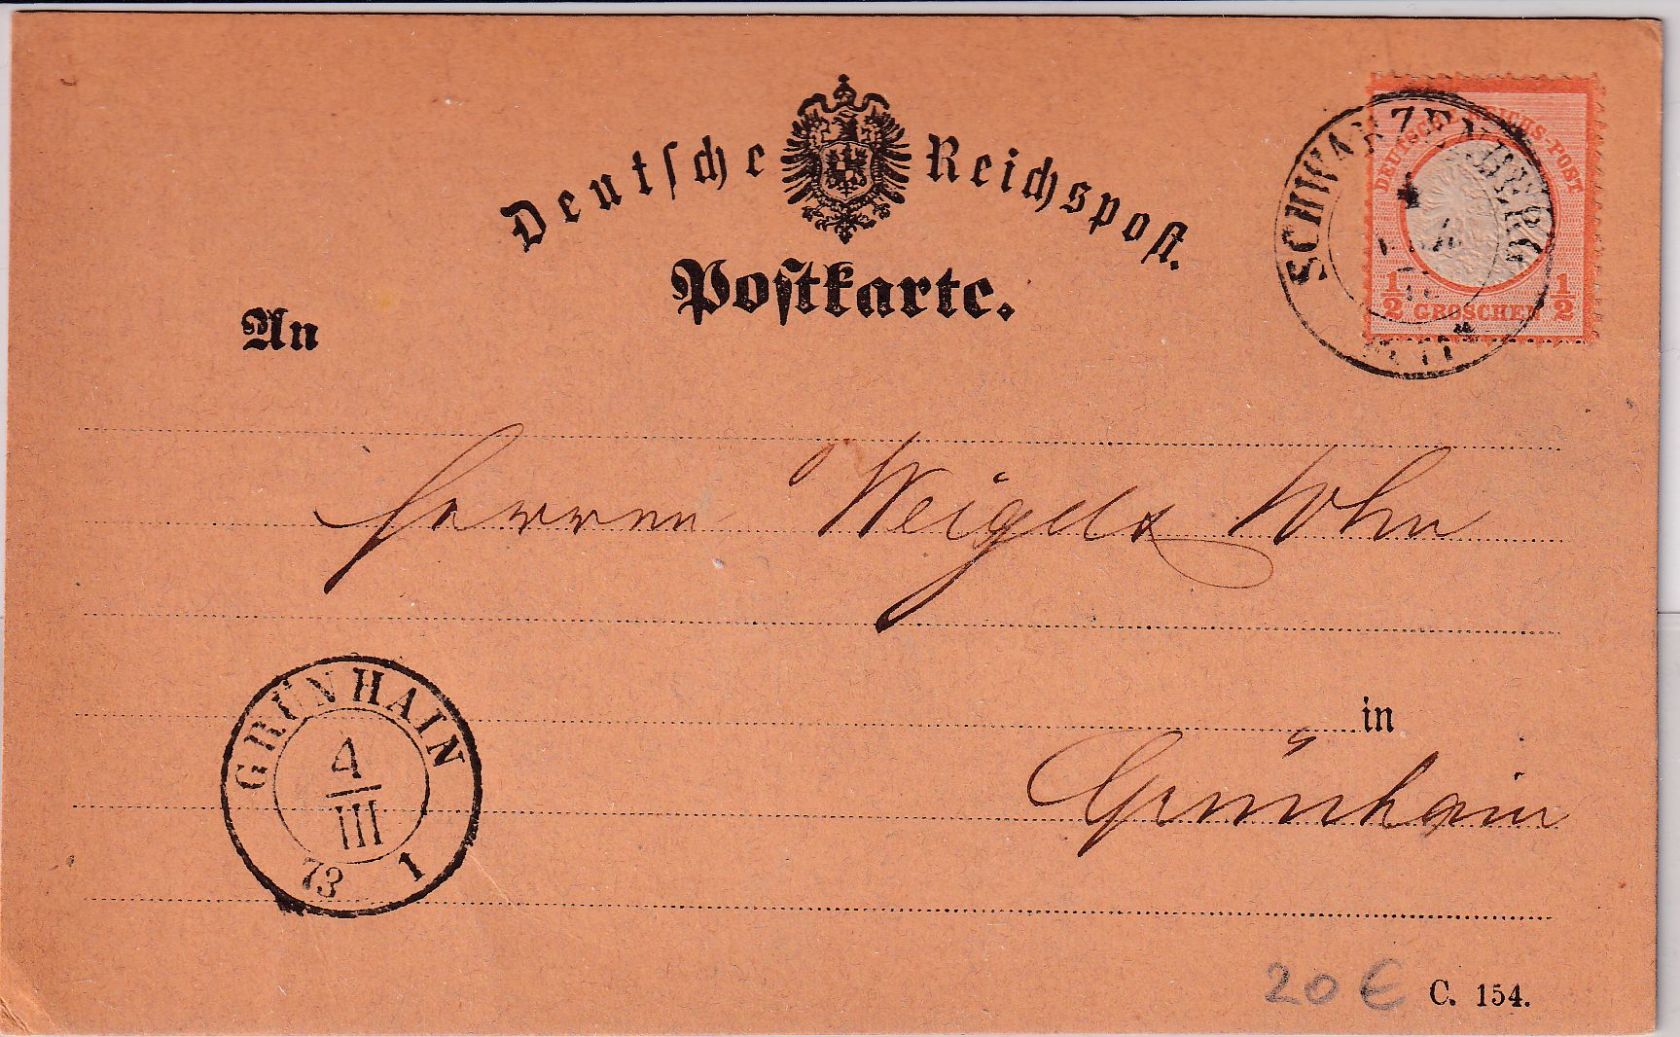 Deutsche Reichspost.
Postkarte.
DEUTSCHE REICHS-POST
1/2 GROSCHEN 1/2
SCHWARZENBERG
An
Herren Weigels Sohn
in
Grünhain
GRÜNHAIN
4
III
73 1
20 €
C. 154.